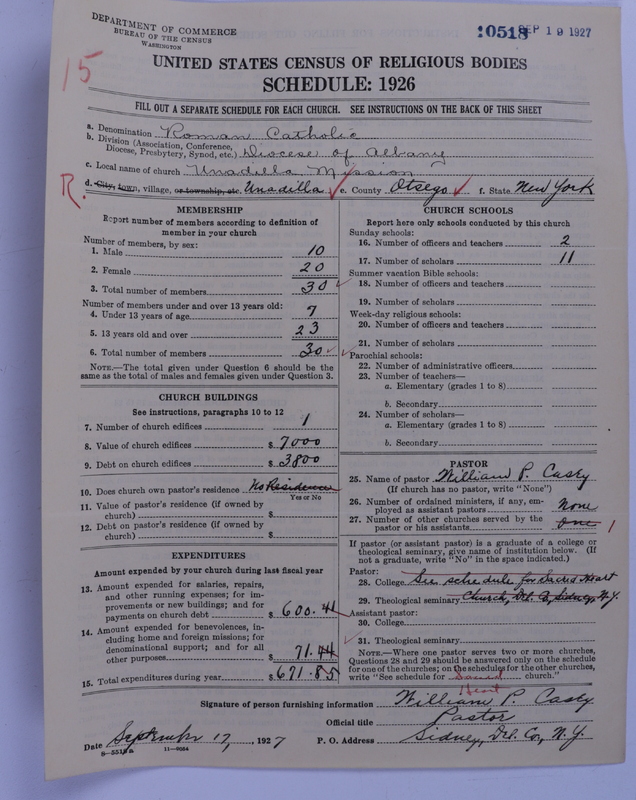 DEPARTMENT OF COMMERCE
BUREAU OF THE CENSUS
WASHINGTON
10518 SEP 19 1927
15
UNITED STATES CENSUS OF RELIGIOUS BODIES
SCHEDULE: 1926
FILL OUT A SEPARATE SCHEDULE FOR EACH CHURCH. SEE INSTRUCTIONS ON THE BACK OF THIS SHEET
a. Denomination Roman Catholic
b. Division (Association, Conference,
Diocese, Presbytery, Synod, etc.) Diocese of Albany
c. Local name of church Unadilla Mission
R.
d. City, town, village, or township, etc. Unadilla e. County Otsego f. State New York
MEMBERSHIP
Report number of members according to definition of
member in your church
Number of members, by sex:
1. Male 10
2. Female 20
3. Total number of members 30
Number of members under and over 13 years old:
4. Under 13 years of age 7
5. 13 years old and over 23
6. Total number of members 30
NOTE.—The total given under Question 6 should be the
same as the total of males and females given under Question 3.
CHURCH BUILDINGS
See instructions, paragraphs 10 to 12
7. Number of church edifices 1
8. Value of church edifices $ 7000
9. Debt on church edifices $ 3800
10. Does church own pastor's residence No Residence
Yes or No
11. Value of pastor's residence (if owned by
church) $
12. Debt on pastor's residence (if owned by
church) $
EXPENDITURES
Amount expended by your church during last fiscal year
13. Amount expended for salaries, repairs,
and other running expenses; for im-
provements or new buildings; and for
payments on church debt $ 600.41
14. Amount expended for benevolences, in-
cluding home and foreign missions; for
denominational support; and for all
other purposes $ 71.44
15. Total expenditures during year $ 671.85
CHURCH SCHOOLS
Report here only schools conducted by this church
Sunday schools:
16. Number of officers and teachers 2
17. Number of scholars 11
Summer vacation Bible schools:
18. Number of officers and teachers
19. Number of scholars
Week-day religious schools:
20. Number of officers and teachers
21. Number of scholars
Parochial schools:
22. Number of administrative officers
23. Number of teachers—
a. Elementary (grades 1 to 8)
b. Secondary
24. Number of scholars—
a. Elementary (grades 1 to 8)
b. Secondary
PASTOR
25. Name of pastor William P. Casey
(If church has no pastor, write "None")
26. Number of ordained ministers, if any, em-
ployed as assistant pastors None
27. Number of other churches served by the
pastor or his assistants one 1
If pastor (or assistant pastor) is a graduate of a college or
theological seminary, give name of institution below. (If
not a graduate, write "No" in the space indicated.)
Pastor:
28. College See schedule for Sacred Heart
29. Theological seminary Church, Del. Co, Sidney, N.Y.
Assistant pastor:
30. College
31. Theological seminary
NOTE.—Where one pastor serves two or more churches,
Questions 28 and 29 should be answered only on the schedule
for one of the churches; on the schedules for the other churches,
write "See schedule for Sacred church."
Heart
Signature of person furnishing information William P. Casey
Official title Pastor
Date September 17, 1927 P. O. Address Sidney, Del. Co., N.Y.
8—5518a 11—6684